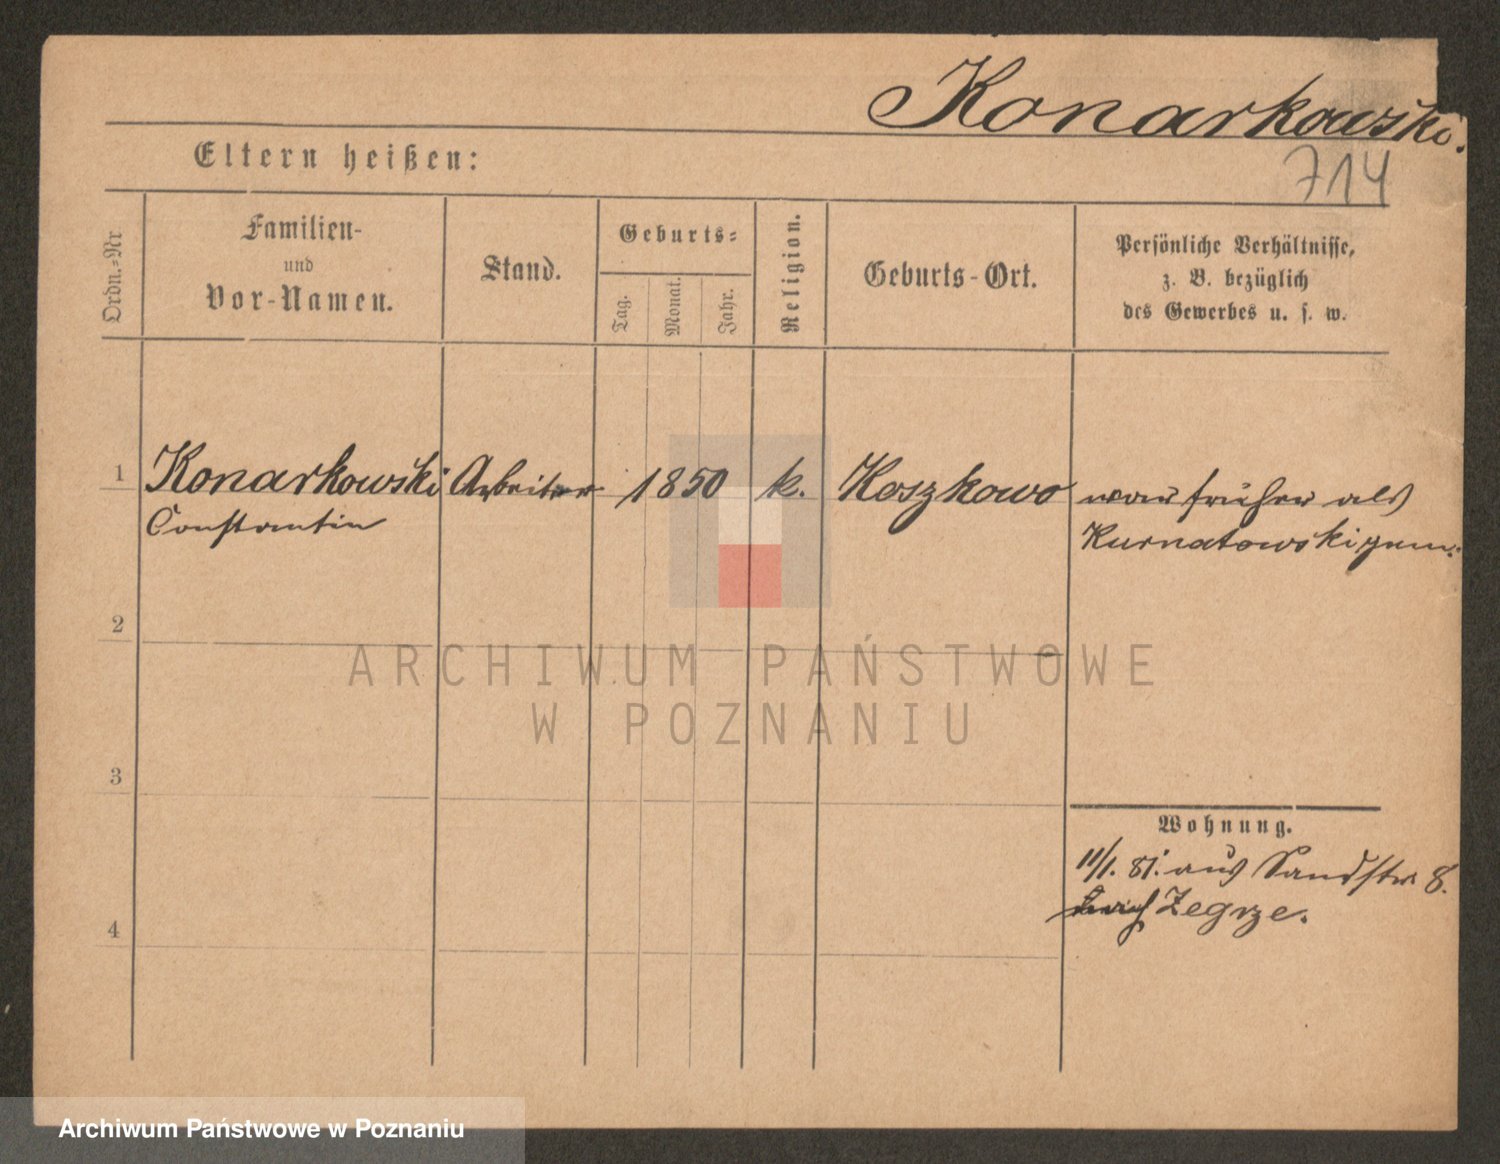 Konarkowski.
714
Eltern heißen:
Ordn.=Nr.
Familien-
und
Vor-Namen.
Stand.
Geburts=
Tag.
Monat.
Jahr.
Religion.
Geburts-Ort.
Persönliche Verhältnisse,
z. B. bezüglich
des Gewerbes u. s. w.
1
Konarkowski Arbeiter 1850 k. Koszkowo war früher als
Constantin
Kurnatowski gem.
2
ARCHIWUM PAŃSTWOWE
W POZNANIU
3
Wohnung.
11/1. 81. aus Sandstr. 8.
Zegrze.
4
Archiwum Państwowe w Poznaniu